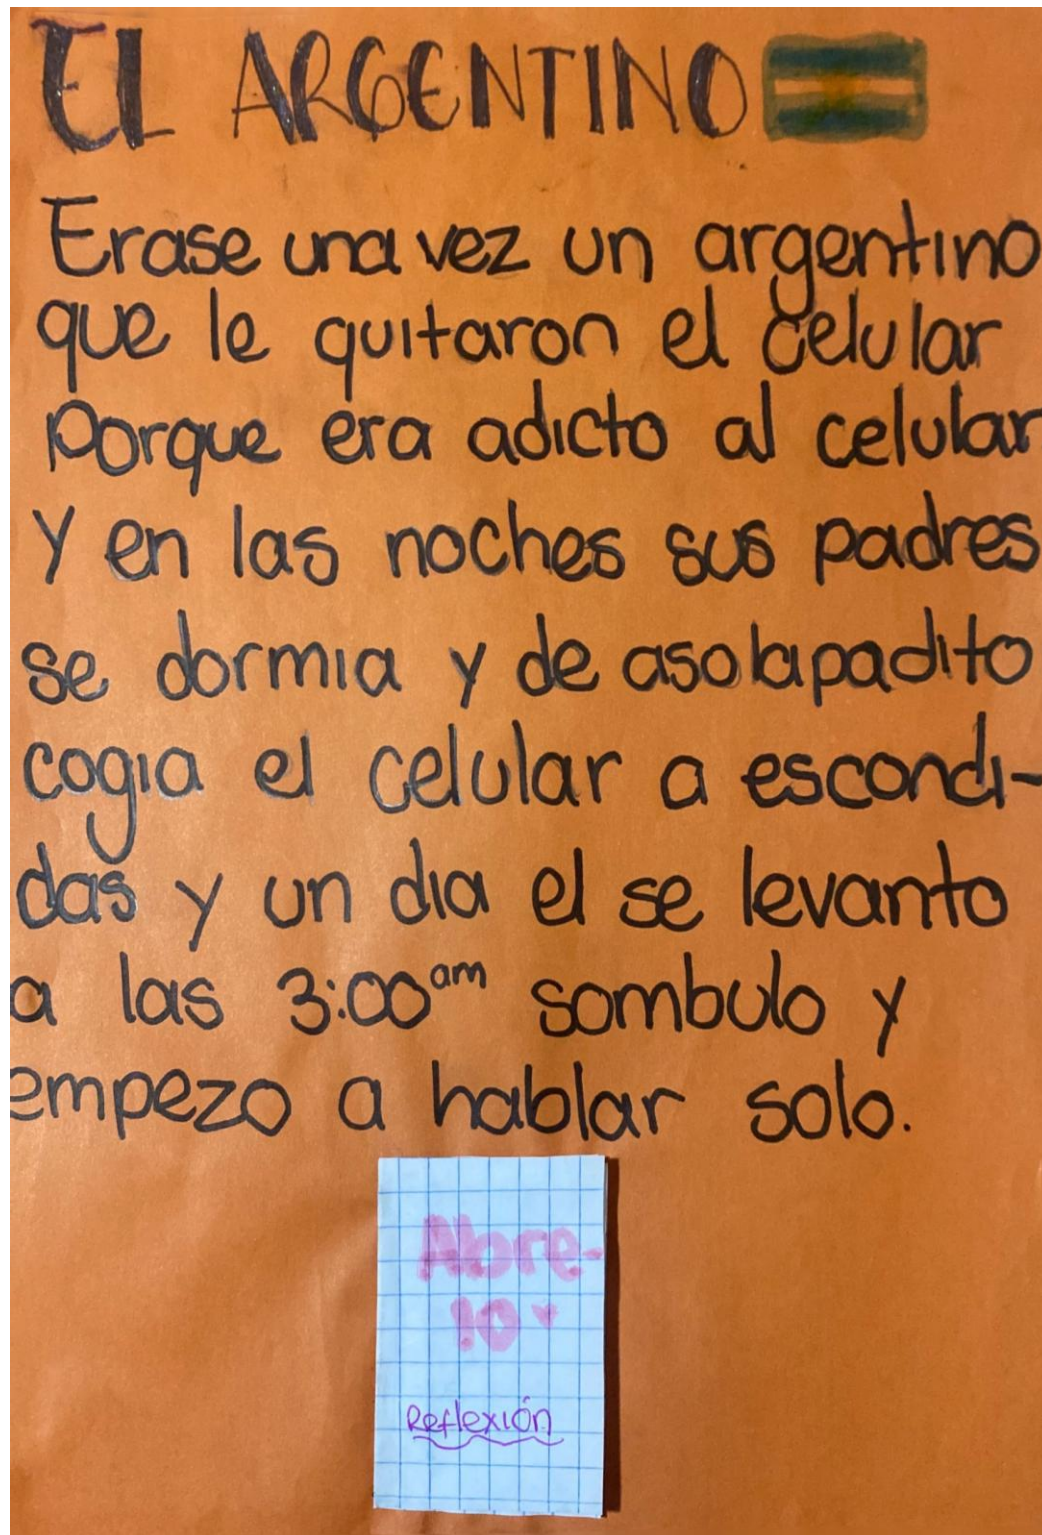 EL ARGENTINO
Erase una vez un argentino
que le quitaron el celular
Porque era adicto al celular
y en las noches sus padres
se dormia y de asolapadito
cogia el celular a escondi-
das y un dia el se levanto
a las 3:00 am sombulo y
empezo a hablar solo.
Abre-
lo
Reflexión